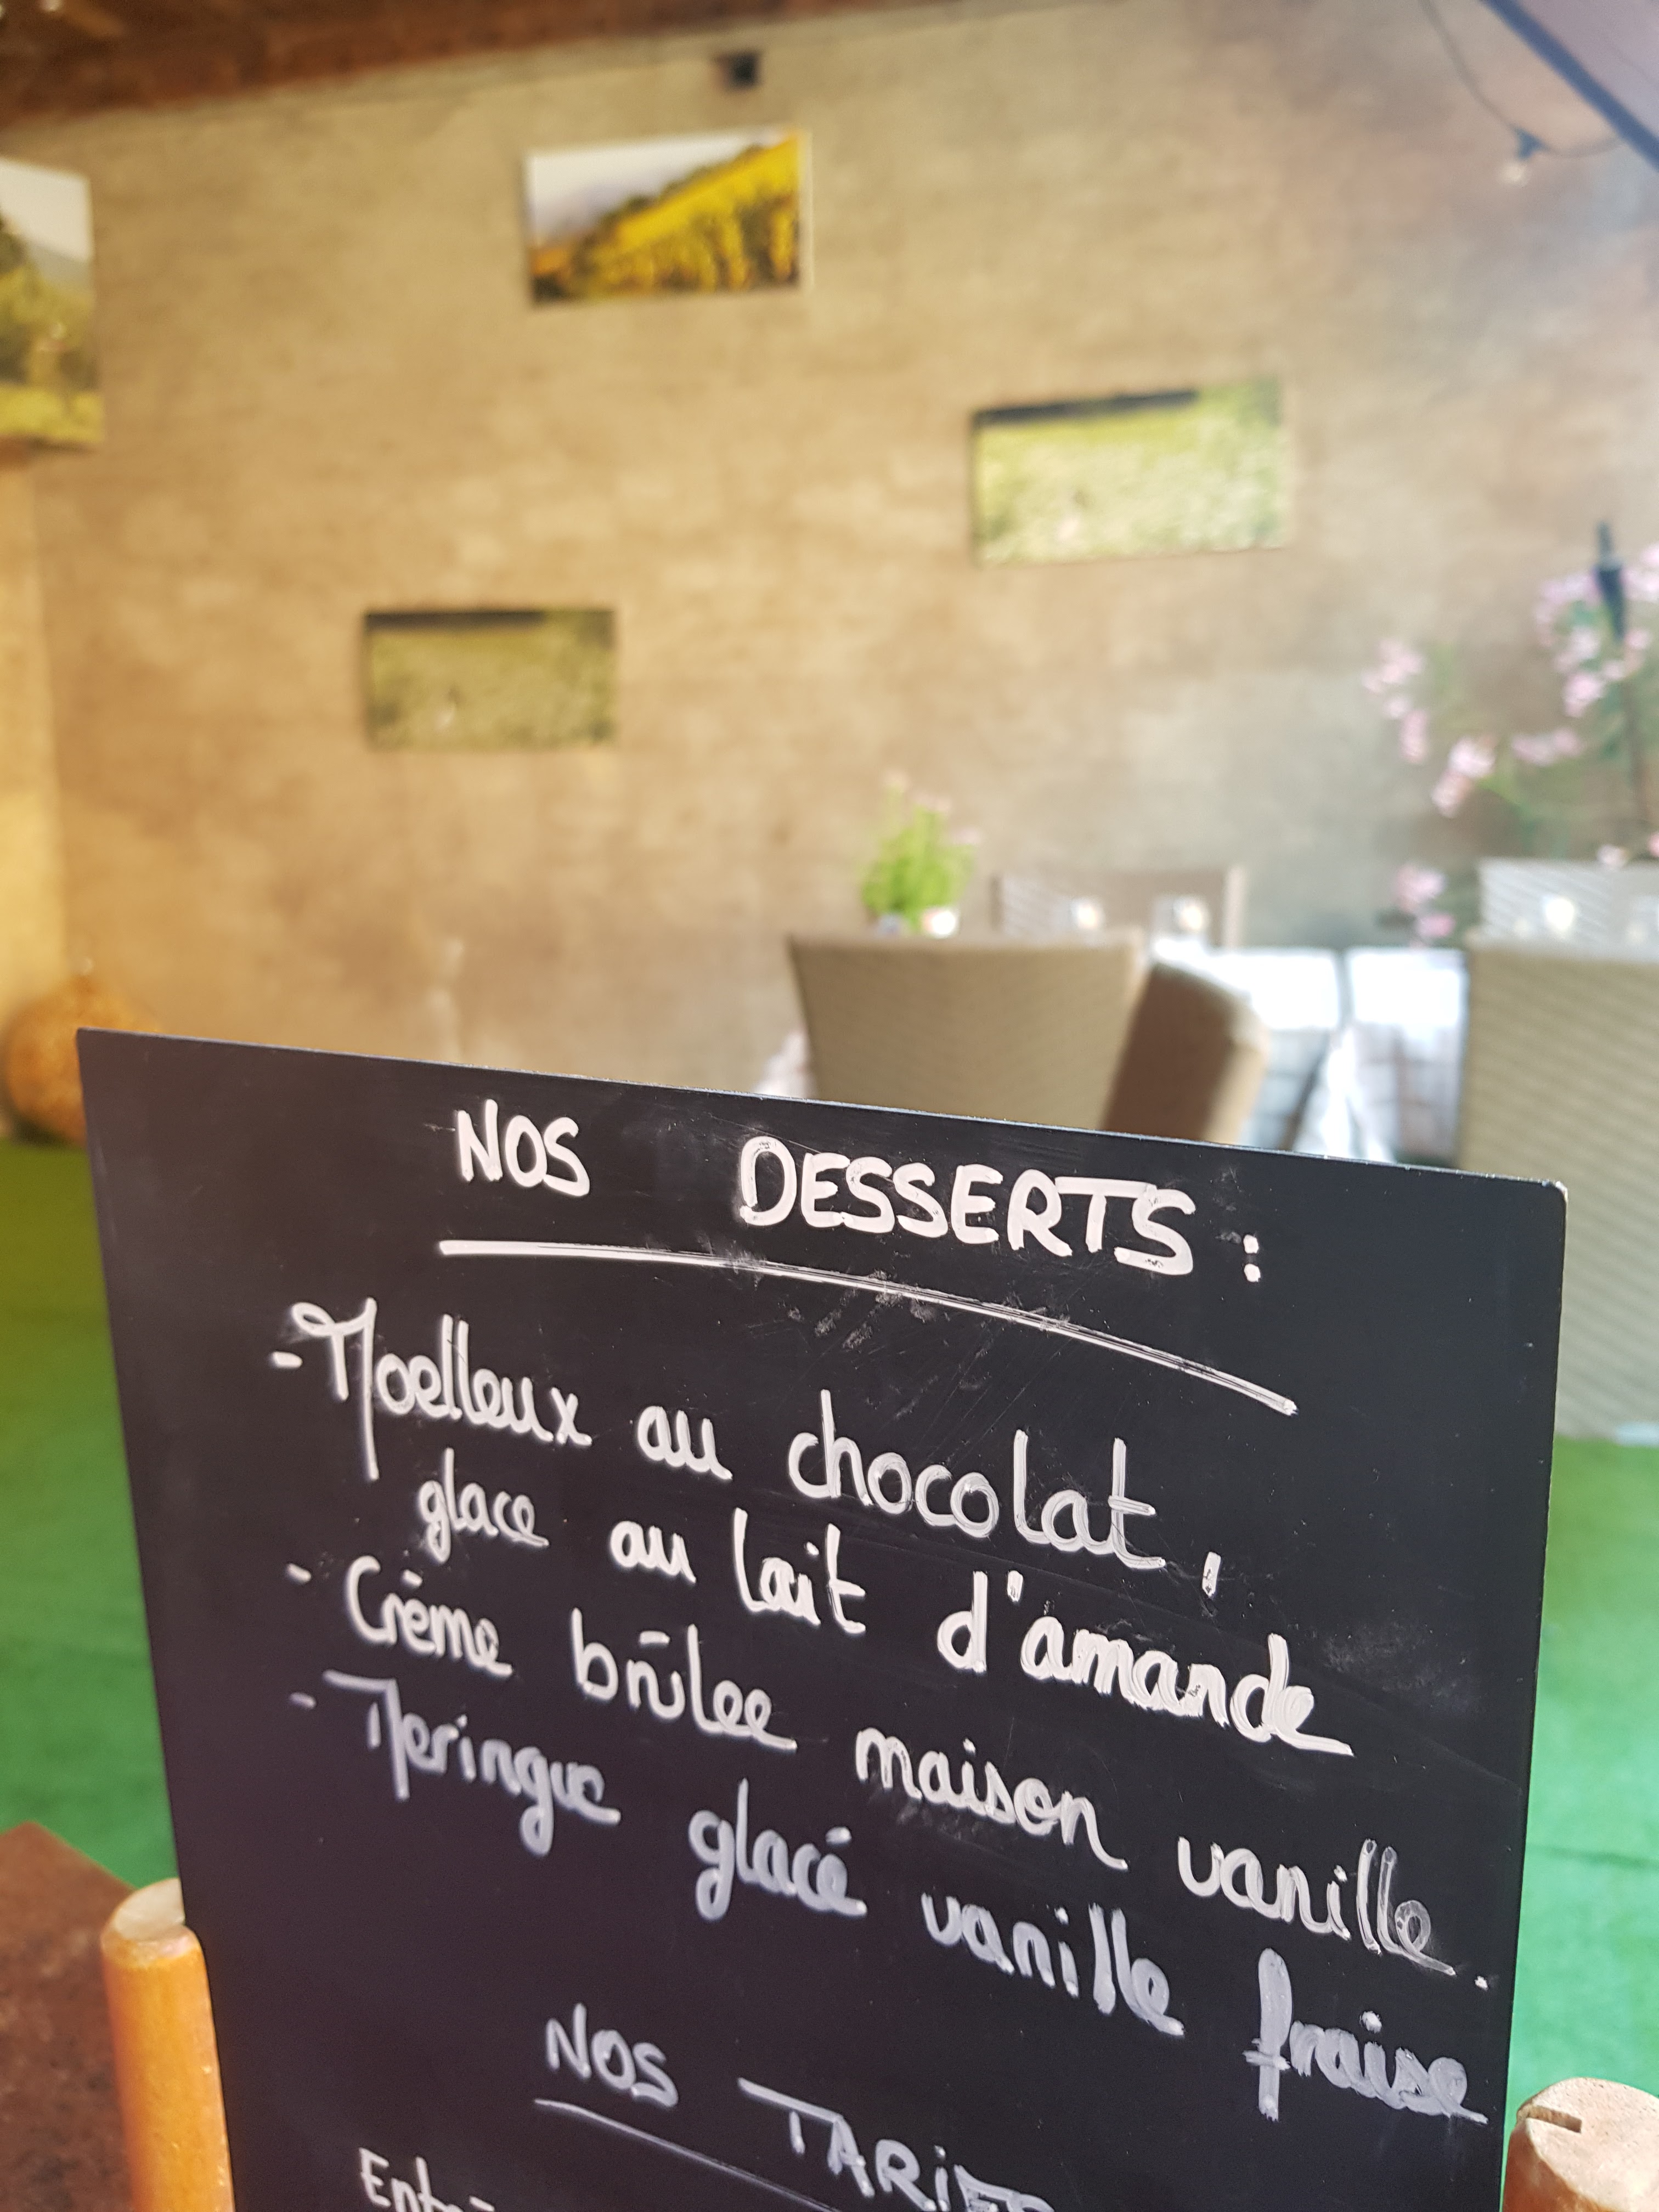 NOS DESSERTS :
- Moelleux au chocolat,
glace au lait d'amande
- Crème brûlee maison vanille.
- Meringue glacé vanille fraise
NOS